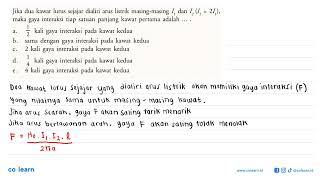 Jika dua kawat lurus sejajar dialiri arus listrik masing-masing I₁ dan I₂ (I₁ = 2I₂),
maka gaya interaksi tiap satuan panjang kawat pertama adalah ... .
a. 1/2 kali gaya interaksi pada kawat kedua
b. sama dengan gaya interaksi pada kawat kedua
c. 2 kali gaya interaksi pada kawat kedua
d. 1/4 kali gaya interaksi pada kawat kedua
e. 4 kali gaya interaksi pada kawat kedua
Dua kawat lurus sejajar yang dialiri arus listrik akan memiliki gaya interaksi (F)
yang nilainya sama untuk masing-masing kawat.
Jika arus searah, gaya F akan saling tarik menarik
Jika arus berlawanan arah, gaya F akan saling tolak menolak
F = μ₀ . I₁ . I₂ . ℓ
2πa
co learn
www.colearn.id
@colearn.id